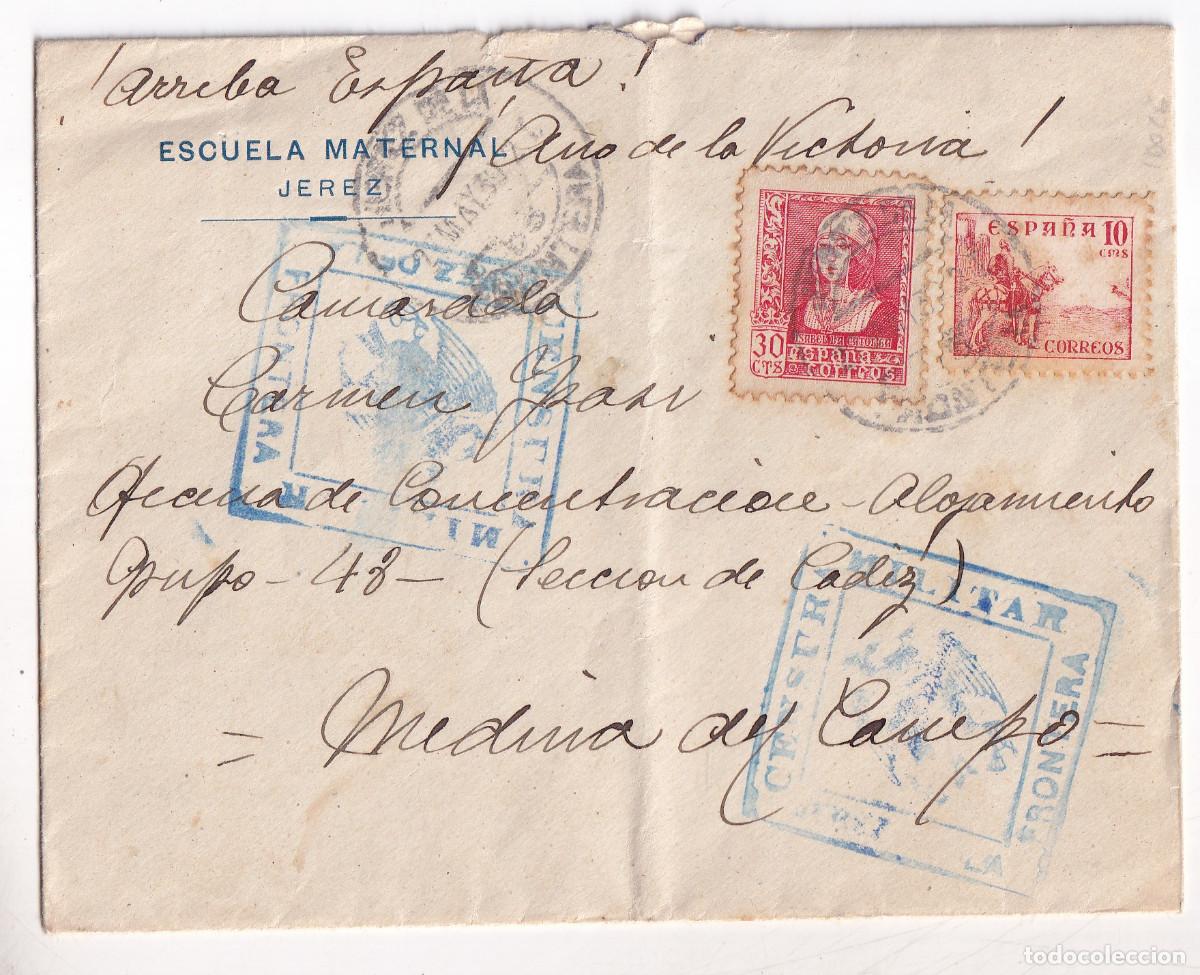 ¡Arriba España!
¡Año de la Victoria!
ESCUELA MATERNAL
JEREZ
Camarada
Carmen
Oficina de Concentracion - Alojamiento
Grupo - 43 - (Seccion de Cadiz)
= Medina del Campo =
30
CTS
ISABEL LA CATOLICA
España
CORREOS
ESPAÑA 10
CTMS
CORREOS
JEREZ DE LA
MAY.39
CENSURA
MILITAR
JEREZ
FRONTERA
CENSURA
MILITAR
JEREZ
LA
FRONTERA
todocoleccion